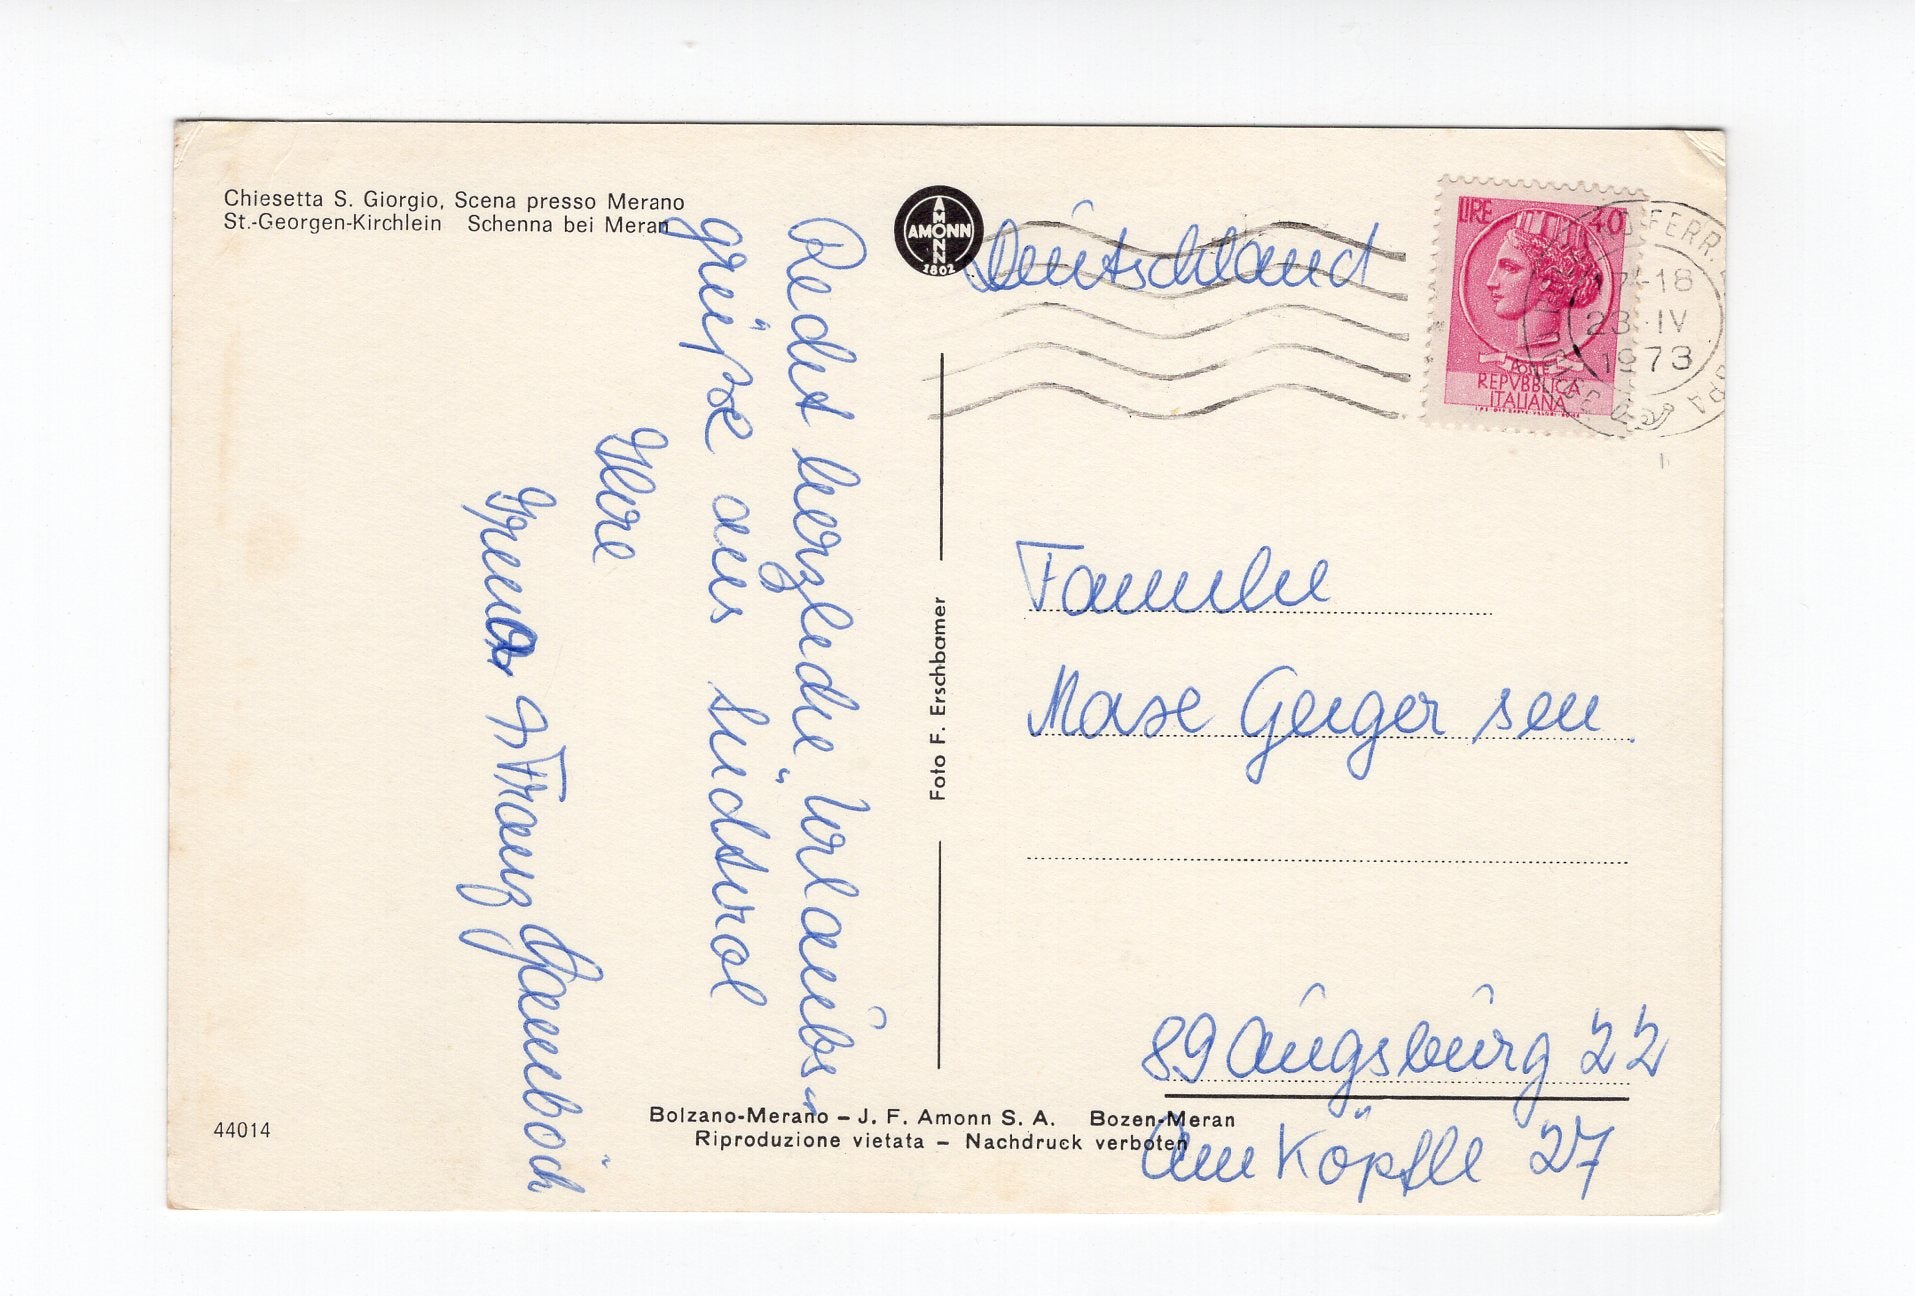 Chiesetta S. Giorgio, Scena presso Merano
St.-Georgen-Kirchlein Schenna bei Meran
AMONN
AMONN
1802
Deutschland
LIRE 40
POSTE
REPVBBLICA
ITALIANA
FERR.
-18
23·IV
1973
Recht herzliche Urlaubs-
grüße aus Südtirol
Ihre
Irena u. Franz
Foto F. Erschbamer
Familie
Max Geiger sen.
89 Augsburg 22
Am Köpfle 27
44014
Bolzano-Merano – J. F. Amonn S. A. Bozen-Meran
Riproduzione vietata – Nachdruck verboten